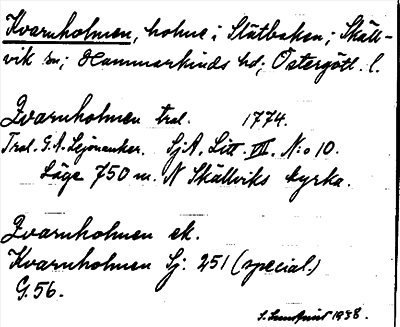 Kvarnholmen, holme i Slätbaken; Skäll-
vik sn; Hammarkinds hd; Östergötl. l.
Qvarnholmen tral. 1774.
Tral. G.A. Lejonanker. Sj.A. Litt. VII. N:o 10.
Läge 750 m. N Skällviks kyrka.
Qvarnholmen ek.
Kvarnholmen Sj. 251 (special.)
G. 56.
S. Lundqvist 1938.